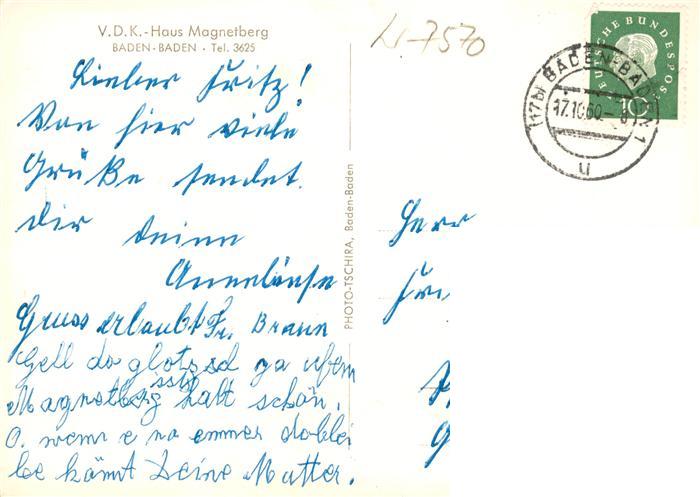 V.D.K.-Haus Magnetberg
BADEN-BADEN · Tel. 3625
Lieber Fritz!
Von hier viele
Grüße sendet
dir deine
Anneliese
Gruss erlaubt Fr. Braun
Gell do glotzsd ga ufem
Magnetberg isst halt schön.
O. wenn e no emmer doblei
be kämt Deine Mutter.
PHOTO-TSCHIRA, Baden-Baden
7570
DEUTSCHE BUNDESPOST
10
(17b) BADEN-BADEN 1
17.10.60-8
u
Herr